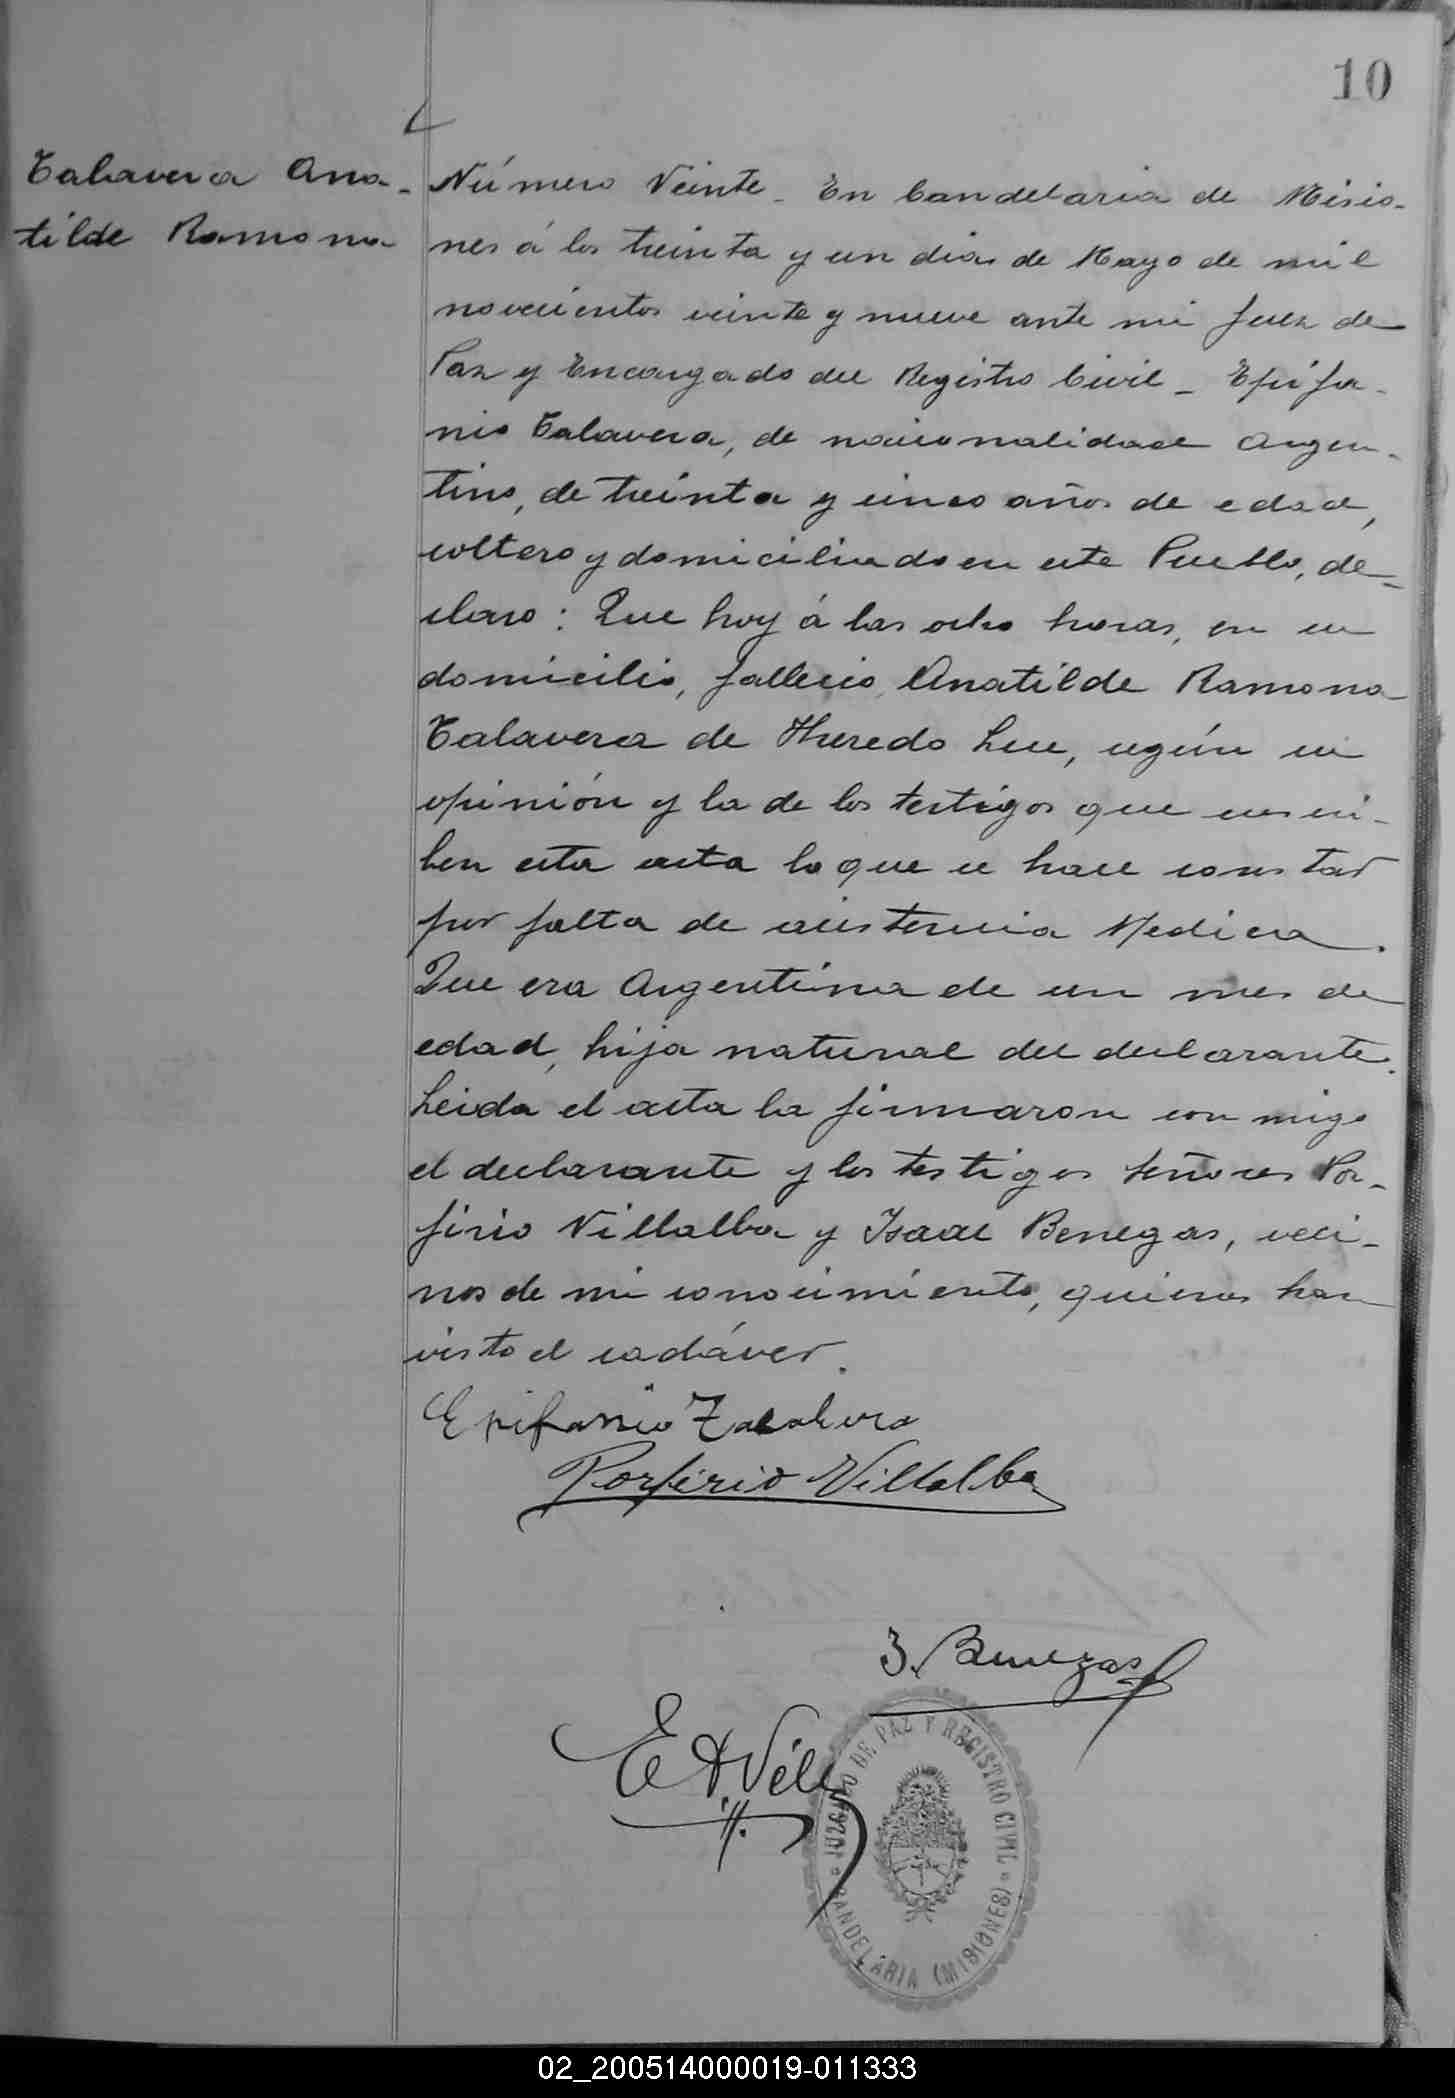 10
Talavera Ana-
tilde Ramona
Número Veinte. En Candelaria de Misio-
nes á los treinta y un dias de Mayo de mil
novecientos veinte y nueve ante mi Juez de
Paz y Encargado del Registro Civil - Epifa-
nio Talavera, de nacionalidad Argen-
tino, de treinta y cinco años de edad,
soltero y domiciliado en este Pueblo, de-
claro: Que hoy á las ocho horas, en su
domicilio, fallecio Anatilde Ramona
Talavera de según su
opinión y la de los testigos que suscri-
ben esta acta lo que se hace constar
por falta de asistencia Medica.
Que era Argentina de un mes de
edad, hija natural del declarante.
Leida el acta la firmaron con migo
el declarante y los testigos Señores Por-
firio Villalba y Isaac Benegas, veci-
nos de mi conocimiento, quienes han
visto el cadáver.
Epifanio Talabera
Porfirio Villalba
I. Benegas
E A. Vél
JUZGADO DE PAZ Y REGISTRO CIVIL
CANDELARIA (MISIONES)
02_200514000019-011333